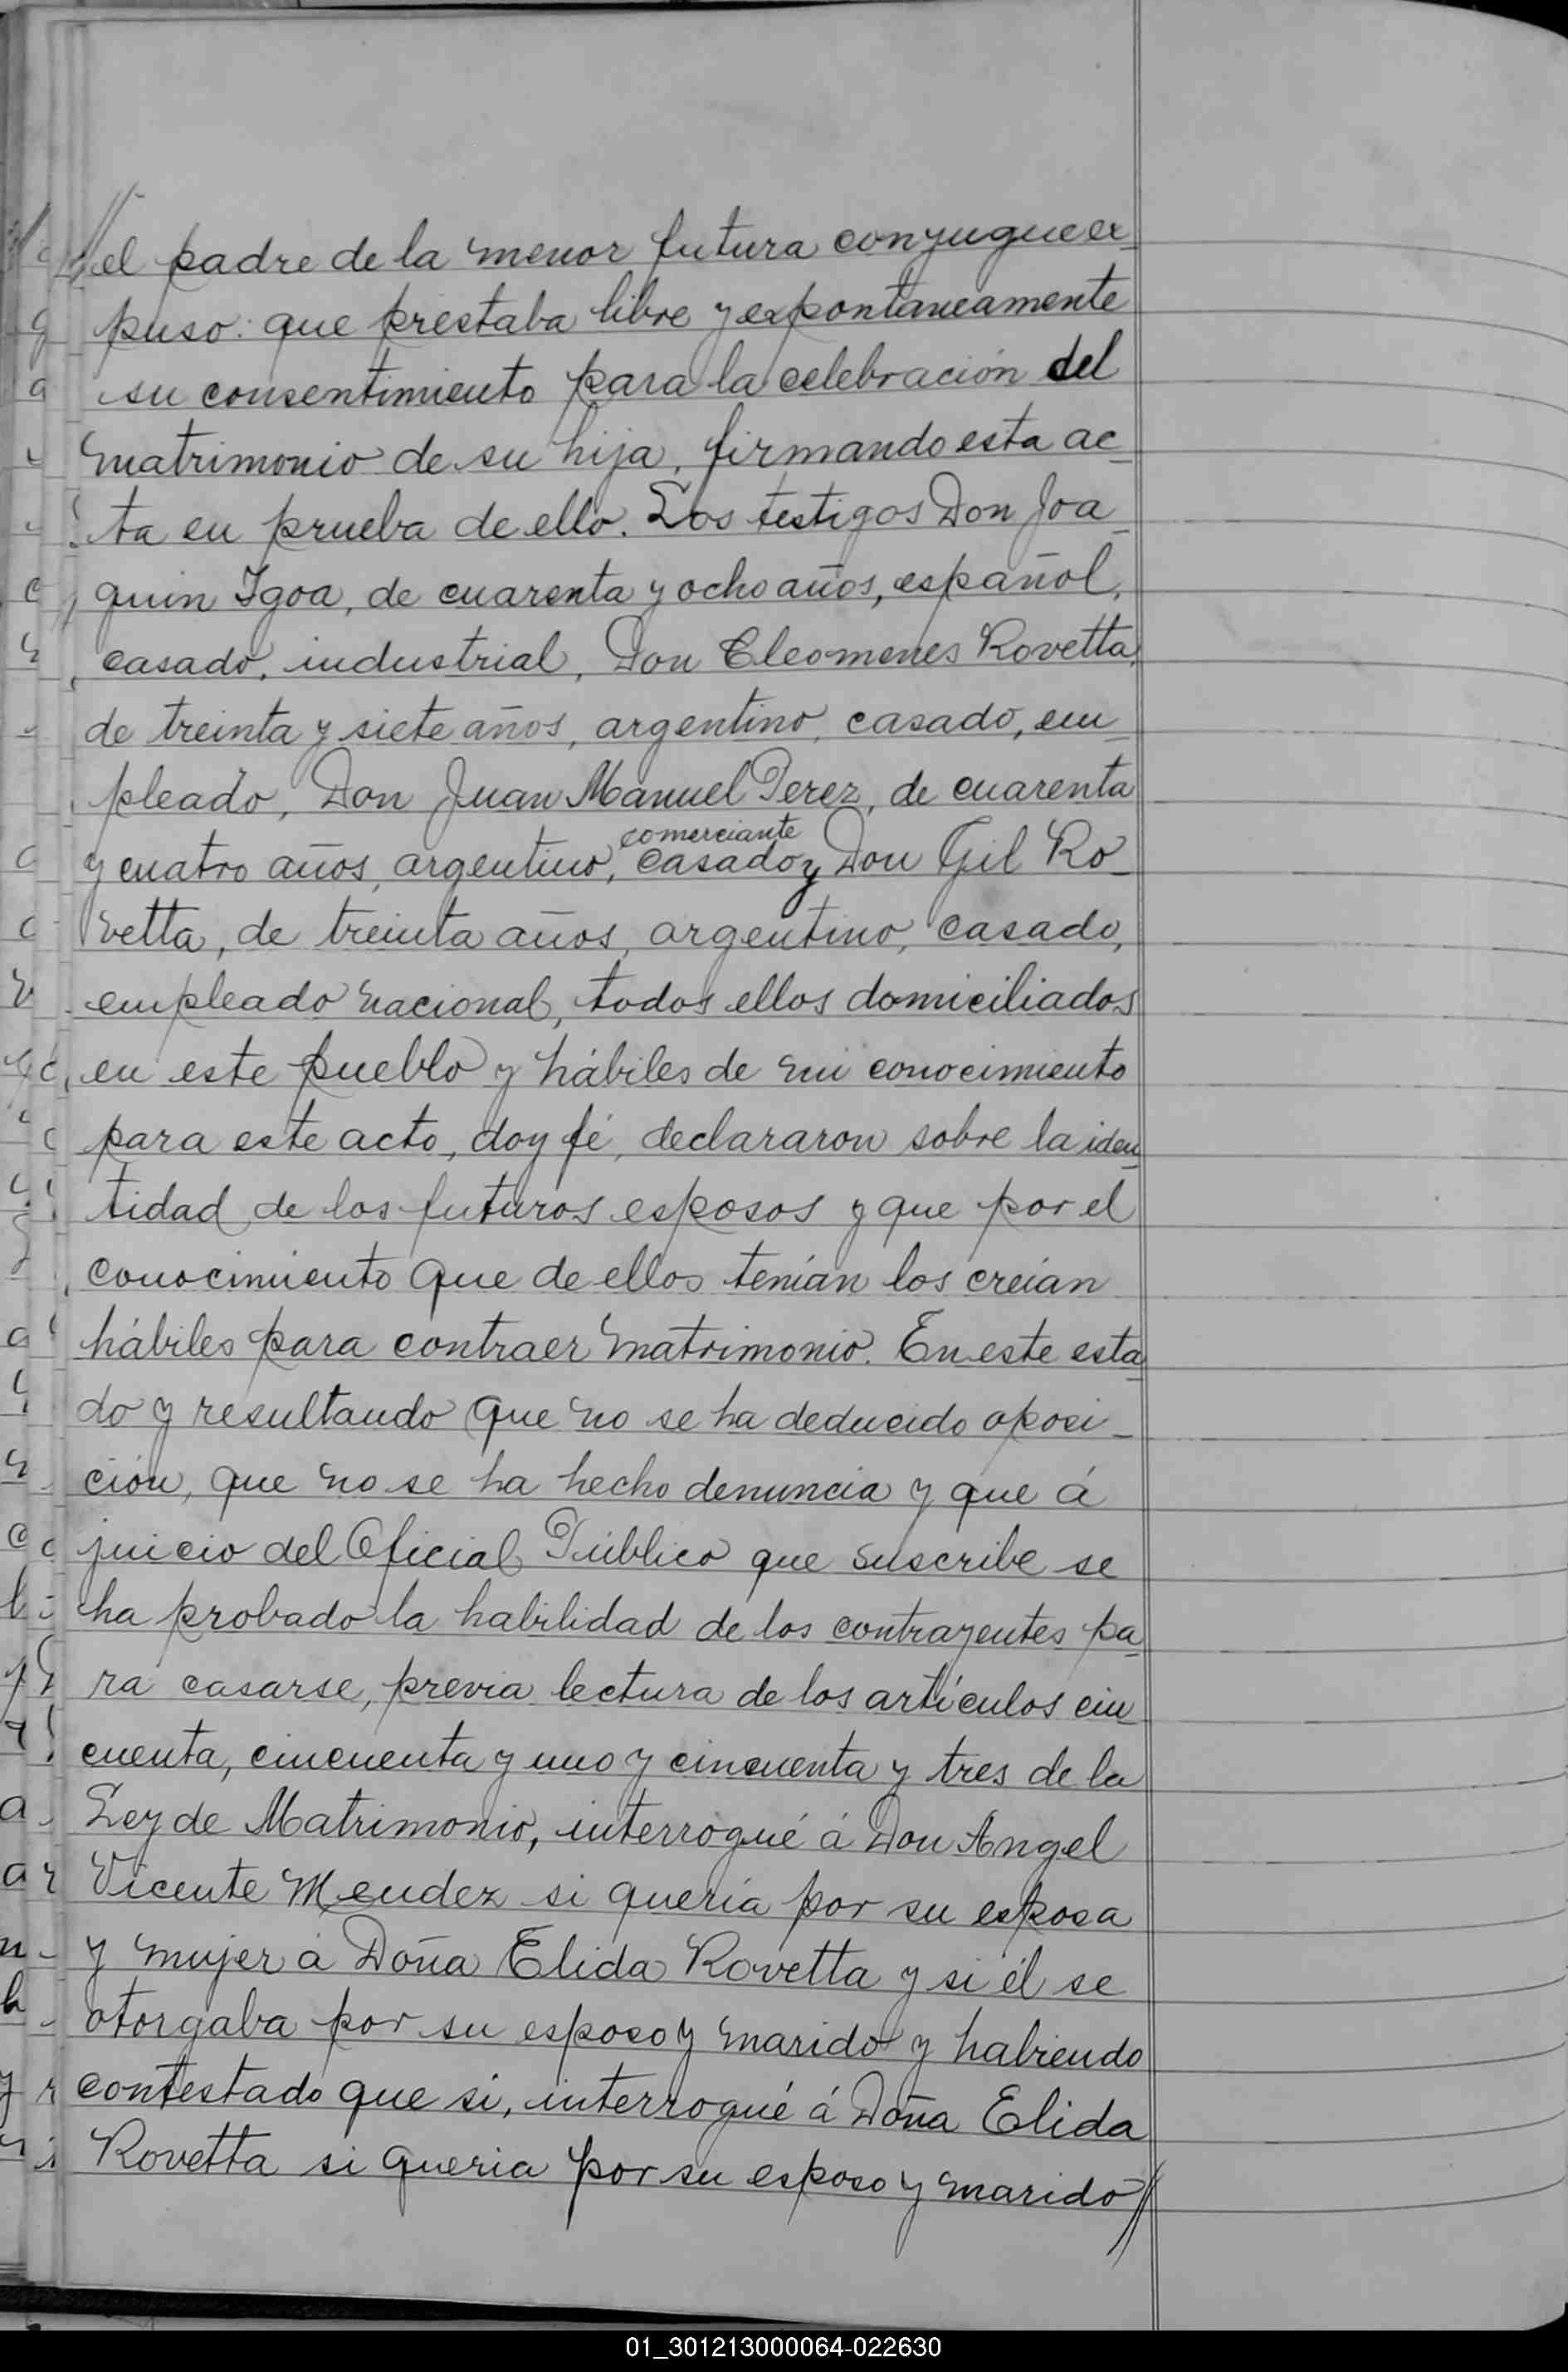 //el padre de la menor futura conyugue ex_
puso: que prestaba libre y expontaneamente
su consentimiento para la celebración del
matrimonio de su hija, firmando esta ac_
ta en prueba de ello. Los testigos Don Joa_
quin Igoa, de cuarenta y ocho años, español,
casado, industrial, Don Cleomenes Rovetta,
de treinta y siete años, argentino, casado, em_
pleado, Don Juan Manuel Perez, de cuarenta
comerciante
y cuatro años, argentino, casado y Don Gil Ro_
vetta, de treinta años, argentino, casado,
empleado nacional, todos ellos domiciliados
en este pueblo y hábiles de mi conocimiento
para este acto, doy fé, declararon sobre la iden_
tidad de los futuros esposos y que por el
conocimiento que de ellos tenían los creían
hábiles para contraer matrimonio. En este esta_
do y resultando que no se ha deducido oposi_
ción, que no se ha hecho denuncia y que á
juicio del Oficial Público que suscribe se
ha probado la habilidad de los contrayentes pa_
ra casarse, previa lectura de los artículos cin_
cuenta, cincuenta y uno y cincuenta y tres de la
Ley de Matrimonio, interrogué á Don Angel
Vicente Mendez si quería por su esposa
y mujer á Doña Elida Rovetta y si él se
otorgaba por su esposo y marido y habiendo
contestado que si, interrogué á Doña Elida
Rovetta si queria por su esposo y marido//
01_301213000064-022630